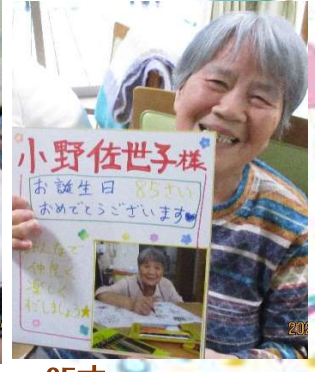 小野佐世子様
お誕生日 85さい
おめでとうございます
みんなで
仲良く
楽しく
だしましょう
202
85才